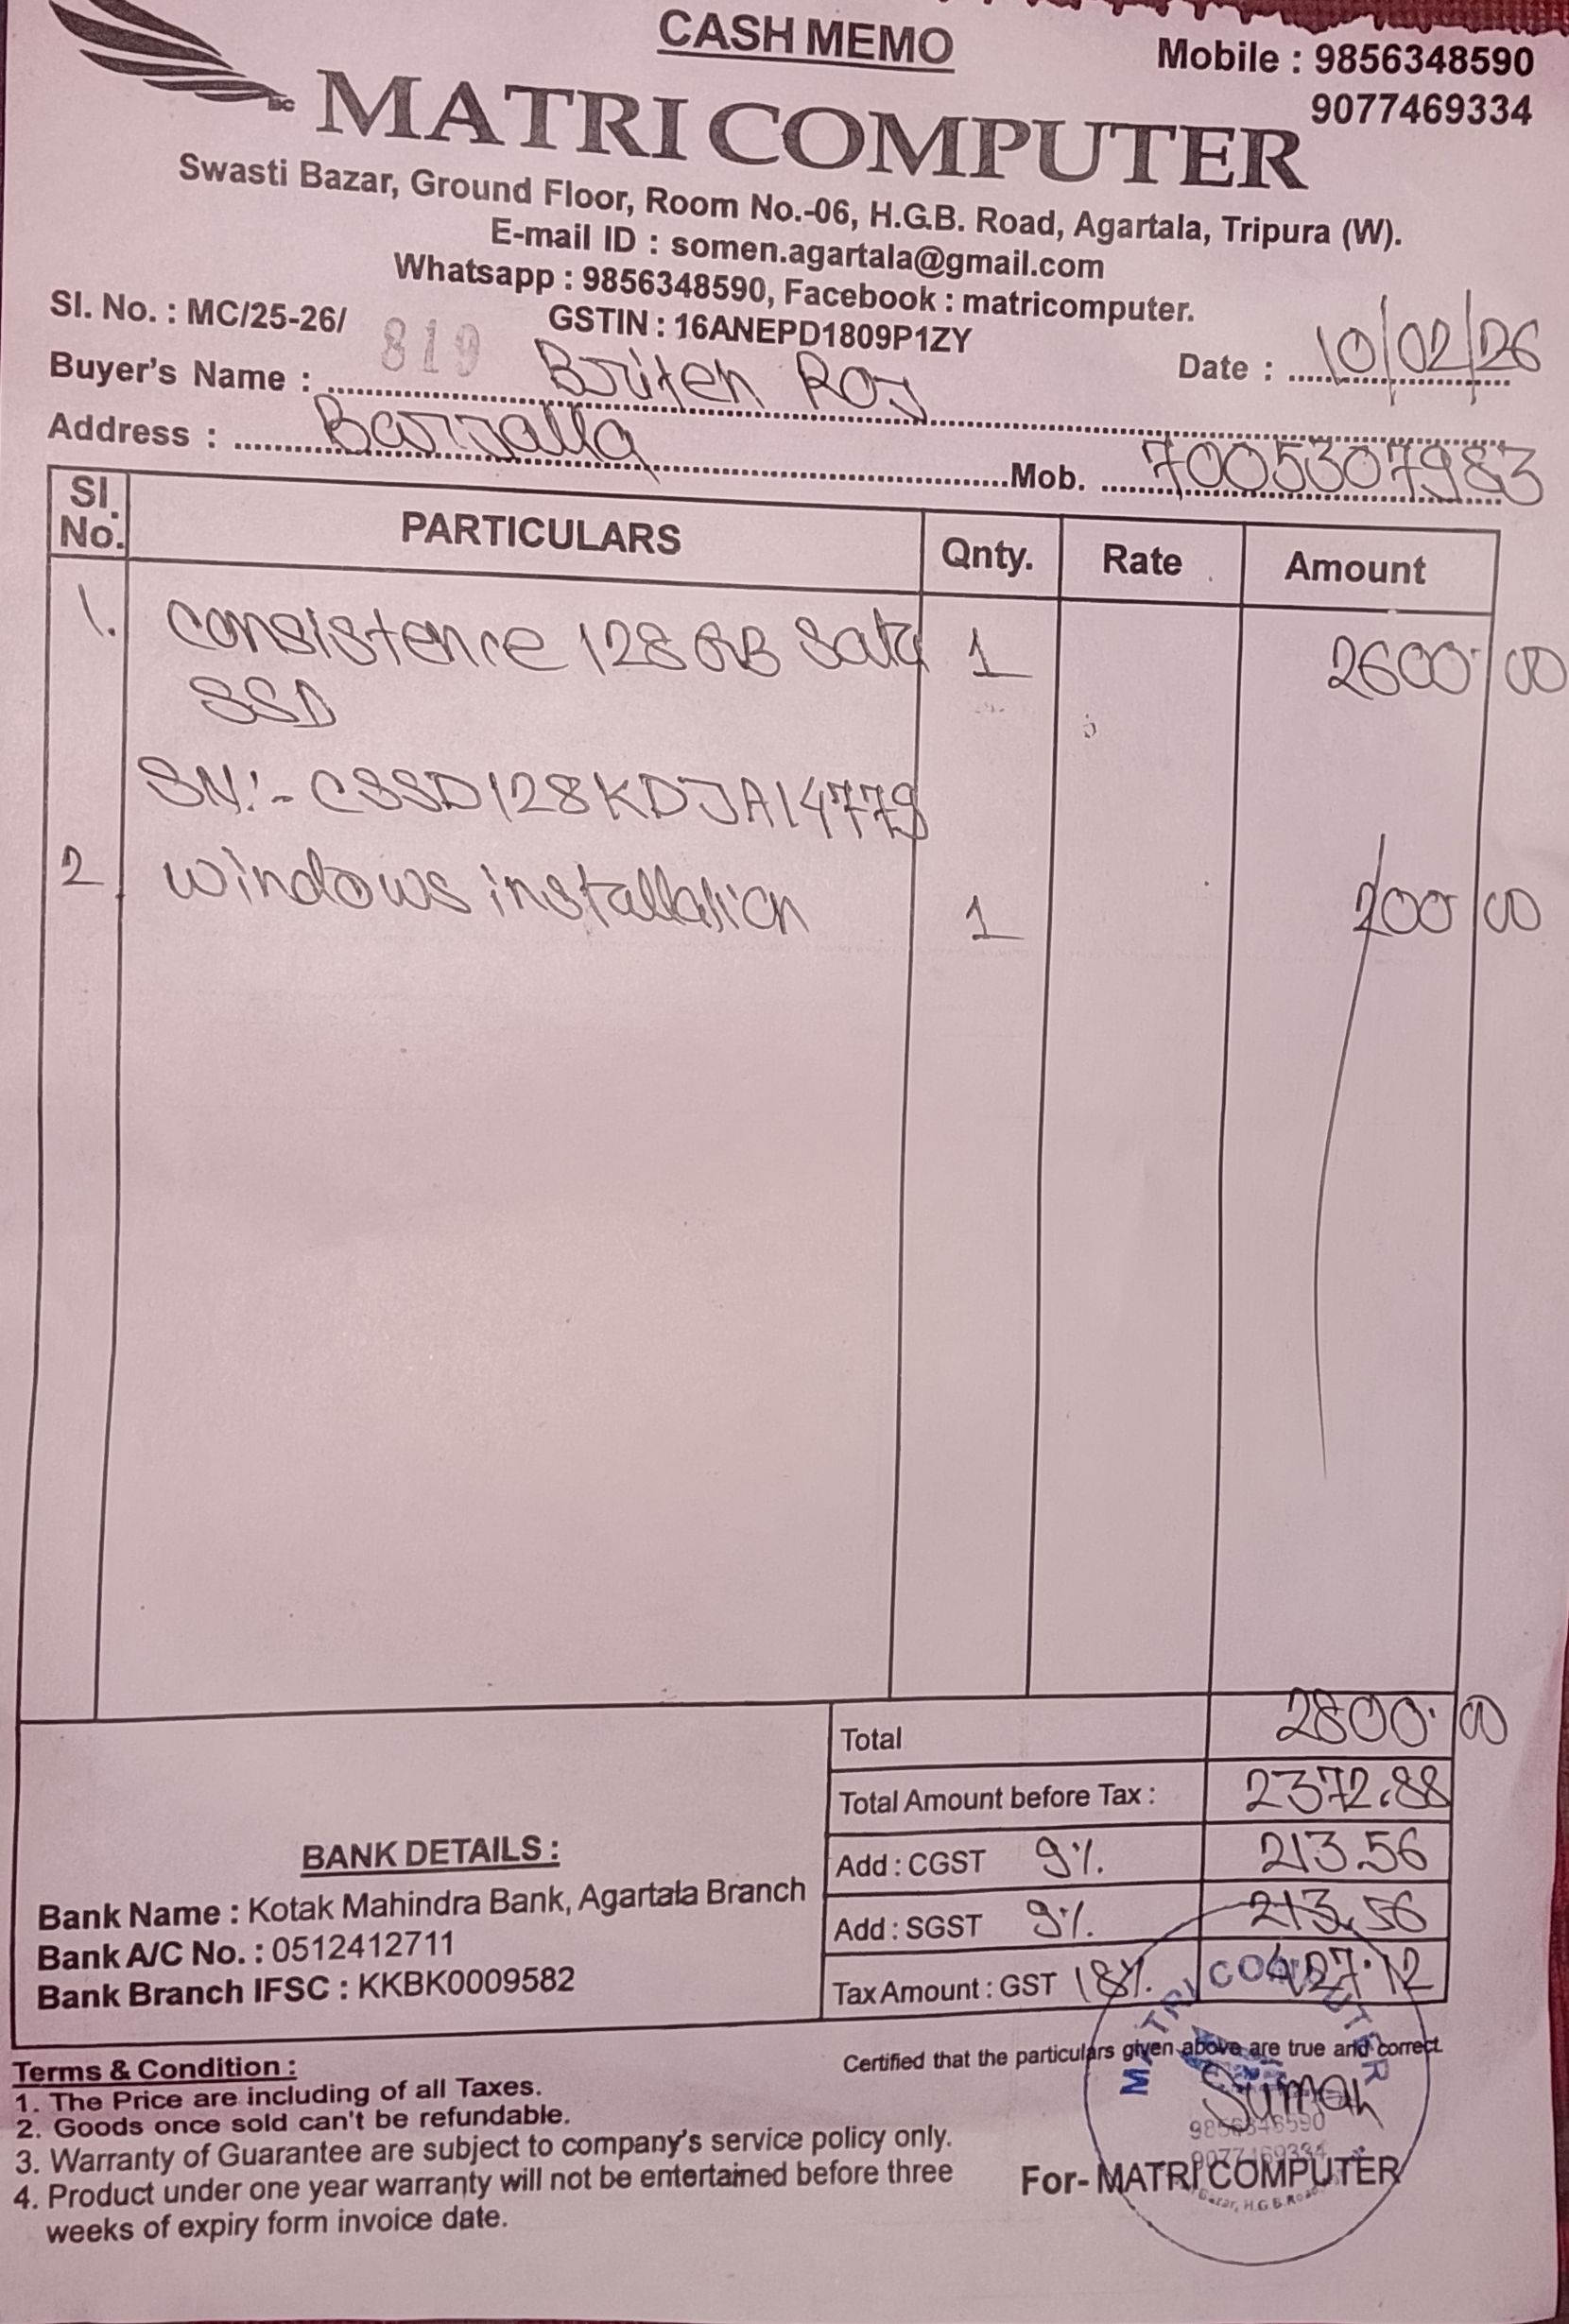 CASH MEMO
Mobile : 9856348590
9077469334
MATRI COMPUTER
Swasti Bazar, Ground Floor, Room No.-06, H.G.B. Road, Agartala, Tripura (W).
E-mail ID : somen.agartala@gmail.com
Whatsapp : 9856348590, Facebook : matricomputer.
Sl. No. : MC/25-26/ 819 GSTIN : 16ANEPD1809P1ZY
Date : 10/02/26
Buyer's Name : Briten Roy
Address : Mob. 7005307983
Sl. No. PARTICULARS Qnty. Rate Amount
1. Consistence 128 GB Sata 1 2600.00
SSD
SN:- CSSD128KDJA14779
2 windows installation 1 200 00
Total 2800.00
Total Amount before Tax : 2372.88
Add : CGST 9% 213.56
Add : SGST 9% 213.56
Tax Amount : GST 18% 427.12
BANK DETAILS :
Bank Name : Kotak Mahindra Bank, Agartala Branch
Bank A/C No. : 0512412711
Bank Branch IFSC : KKBK0009582
Certified that the particulars given above are true and correct
Terms & Condition :
1. The Price are including of all Taxes.
2. Goods once sold can't be refundable.
3. Warranty of Guarantee are subject to company's service policy only.
4. Product under one year warranty will not be entertained before three
weeks of expiry form invoice date.
MATRI COMPUTER
Suman
9856348590
9077469334
For- MATRI COMPUTER